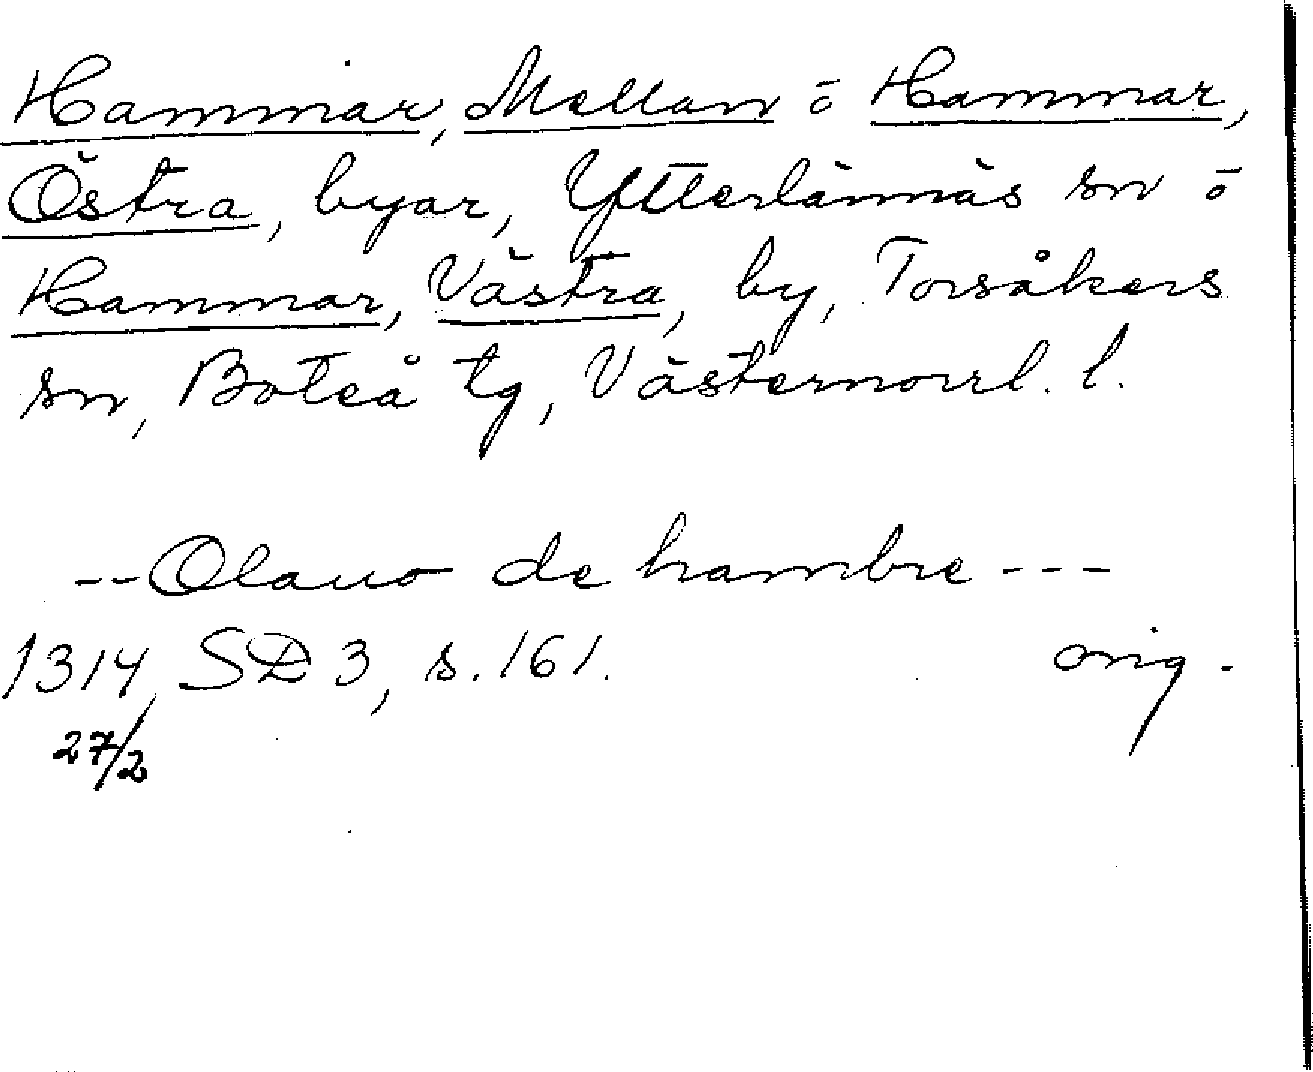 Hammar, Mellan o Hammar,
Östra, byar, Ytterlännäs sn o
Hammar, Västra, by, Torsåkers
sn, Boteå tg, Västernorrl. l.
--Olauo de hambre---
1314, SD 3, s. 161. orig.
27/2